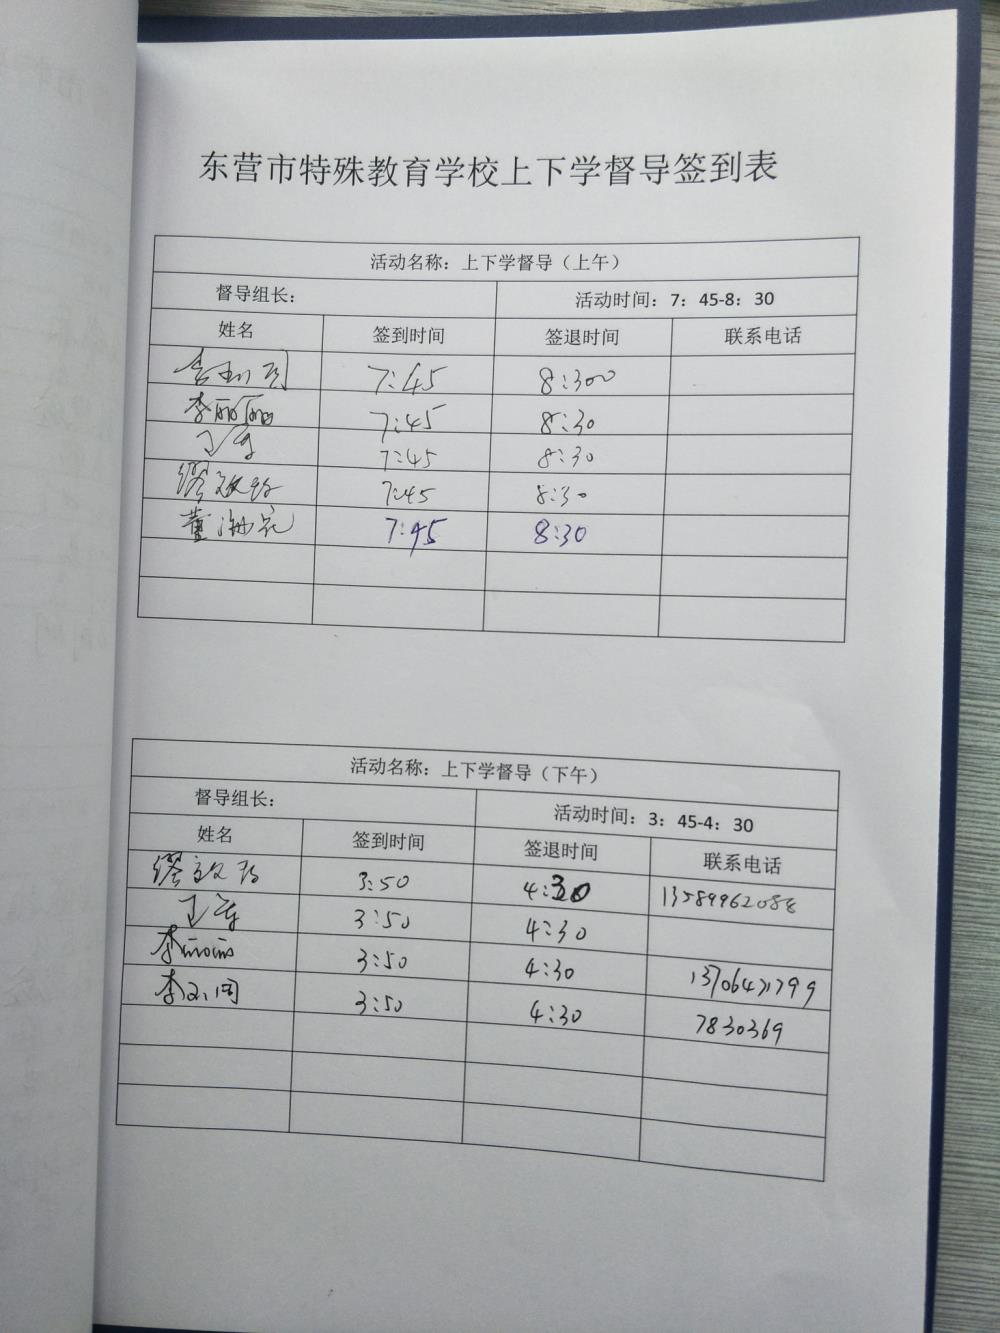 东营市特殊教育学校上下学督导签到表
活动名称：上下学督导（上午）
督导组长： 活动时间：7：45-8：30
姓名 签到时间 签退时间 联系电话
7:45 8:300
李丽丽 7:45 8:30
7:45 8:30
缪 7:45 8:30
董 7:45 8:30
活动名称：上下学督导（下午）
督导组长： 活动时间：3：45-4：30
姓名 签到时间 签退时间 联系电话
缪 3:50 4:30 13589962088
3:50 4:30
李丽丽 3:50 4:30 13706471799
李 3:50 4:30 7830369